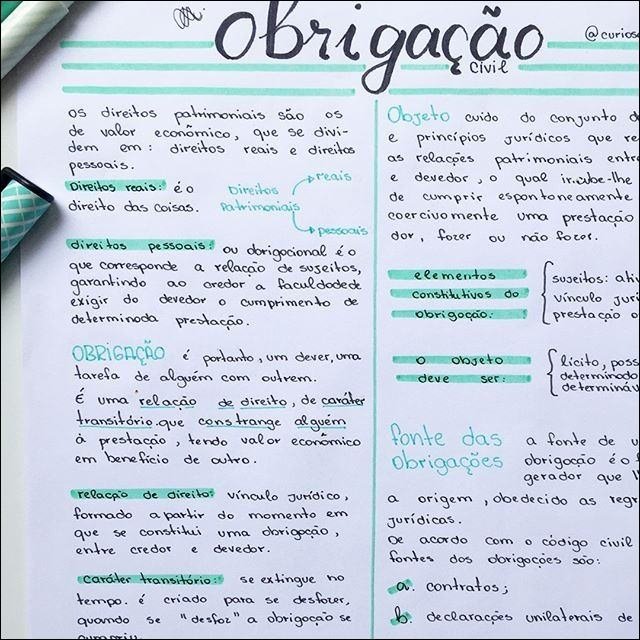 obrigação
civil
@curios
os direitos patrimoniais são os
de valor econômico, que se divi-
dem em: direitos reais e direitos
pessoais.
Direitos reais: é o
direito das coisas.
Direitos
Patrimoniais
reais
pessoais
direitos pessoais: ou obrigacional é o
que corresponde a relação de sujeitos,
garantindo ao credor a faculdade de
exigir do devedor o cumprimento de
determinada prestação.
OBRIGAÇÃO é portanto, um dever, uma
tarefa de alguém com outrem.
É uma relação de direito, de caráter
transitório que constrange alguém
à prestação, tendo valor econômico
em benefício de outro.
relação de direito: vínculo jurídico,
formado a partir do momento em
que se constitui uma obrigação,
entre credor e devedor.
caráter transitório: se extingue no
tempo. é criado para se desfazer,
quando se "desfaz" a obrigação se
Objeto cuida do conjunto d
e princípios jurídicos que re
as relações patrimoniais entr
e devedor, o qual incube-lhe
de cumprir espontaneamente
coercivamente uma prestação
dar, fazer ou não fazer.
elementos
constitutivos da
obrigação:
sujeitos: ati
vínculo juríd
prestação o
o objeto
deve ser:
lícito, poss
determinado
determináv
fonte das
obrigações
a fonte de u
obrigação é o f
gerador que l
a origem, obedecido as regr
jurídicas.
De acordo com o código civil
fontes das obrigações são:
a. contratos;
b. declarações unilaterais de